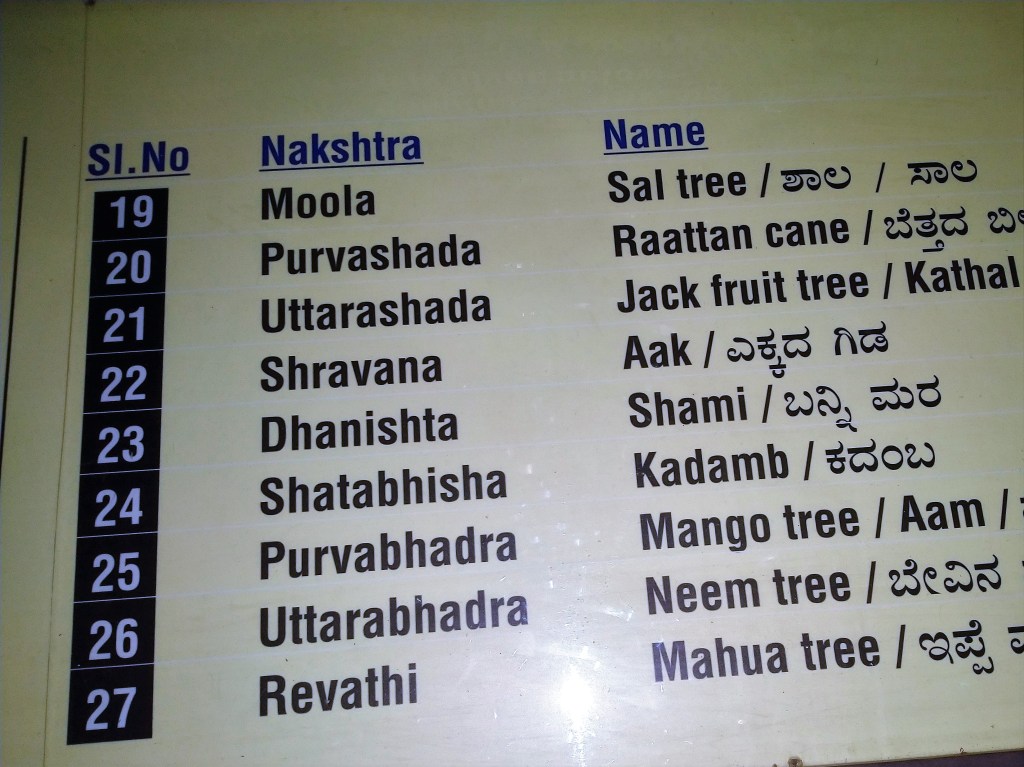 Sl.No Nakshtra Name
19 Moola Sal tree / ಶಾಲ / ಸಾಲ
20 Purvashada Raattan cane / ಬೆತ್ತದ
21 Uttarashada Jack fruit tree / Kathal
22 Shravana Aak / ಎಕ್ಕದ ಗಿಡ
23 Dhanishta Shami / ಬನ್ನಿ ಮರ
24 Shatabhisha Kadamb / ಕದಂಬ
25 Purvabhadra Mango tree / Aam /
26 Uttarabhadra Neem tree / ಬೇವಿನ
27 Revathi Mahua tree / ಇಪ್ಪೆ